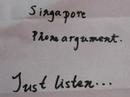 Singapore
Phone argument.
Just listen...